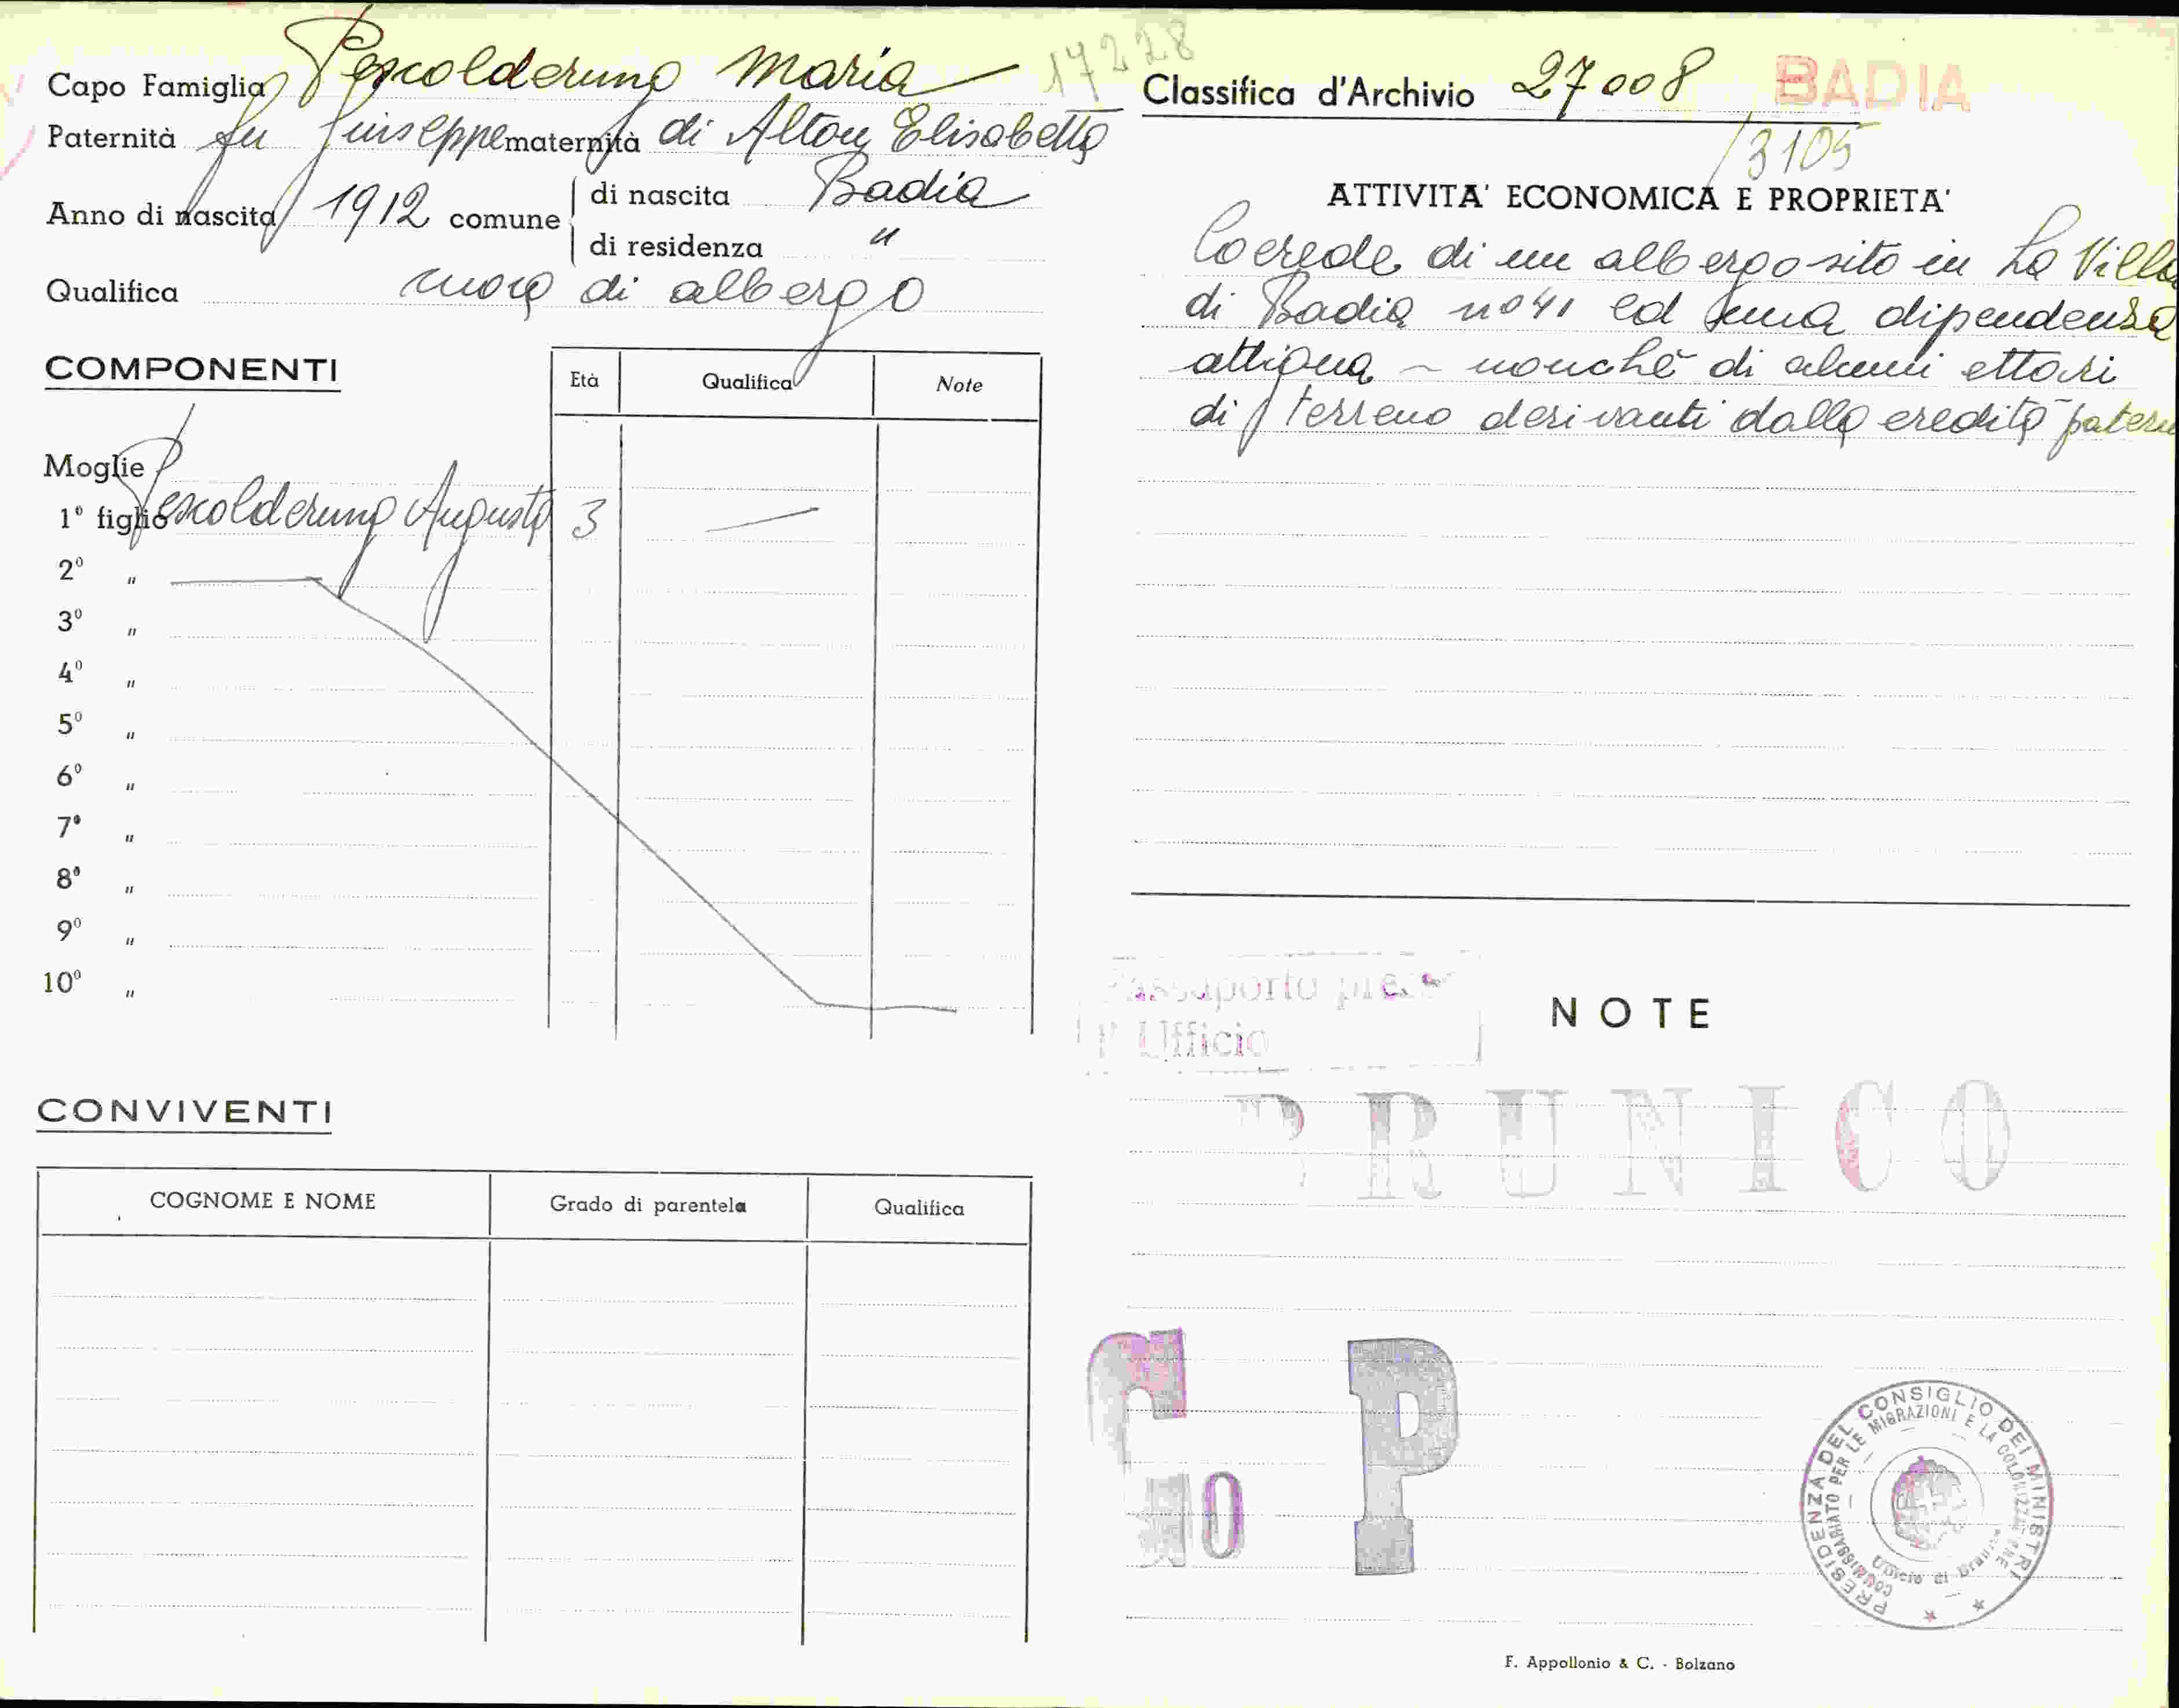 Capo Famiglia Pescolderung Maria 17228
Paternità fu Giuseppe maternità di Alton Elisabetta
Anno di nascita 1912 comune di nascita Badia
di residenza "
Qualifica cuoca di albergo
COMPONENTI
Età Qualifica Note
Moglie
1º figlio Pescolderung Augusto 3 —
2º "
3º "
4º "
5º "
6º "
7º "
8º "
9º "
10º "
CONVIVENTI
COGNOME E NOME Grado di parentela Qualifica
Classifica d'Archivio 27008 BADIA
/3105
ATTIVITA' ECONOMICA E PROPRIETA'
Coerede di un albergo sito in La Villa
di Badia nº 41 ed una dipendenza
attigua – nonchè di alcuni ettari
di terreno derivanti dalla eredità patern
Passaporto pre
l' Ufficio
NOTE
BRUNICO
P
PRESIDENZA DEL CONSIGLIO DEI MINISTRI
COMMISSARIATO PER LE MIGRAZIONI E LA COLONIZZAZIONE
Ufficio di Brunico
F. Appollonio & C. - Bolzano